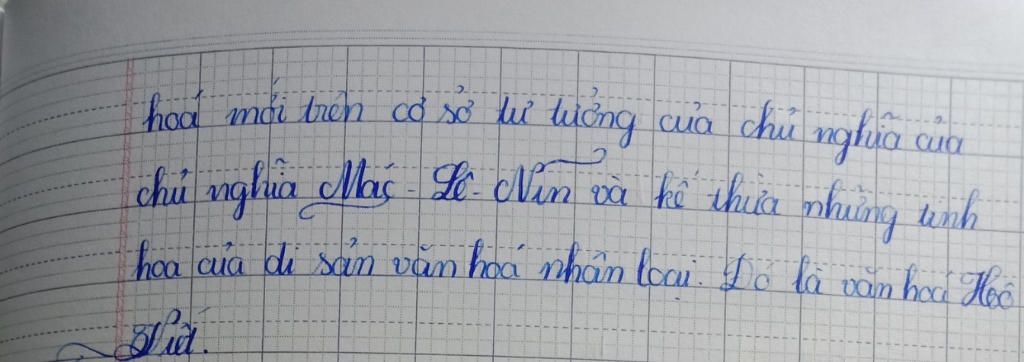 hoá mới trên cơ sở tư tưởng của chủ nghĩa của
chủ nghĩa Mác - Lê - Nin và kế thừa những tinh
hoa của di sản văn hoá nhân loại. Đó là văn hoá Hoá